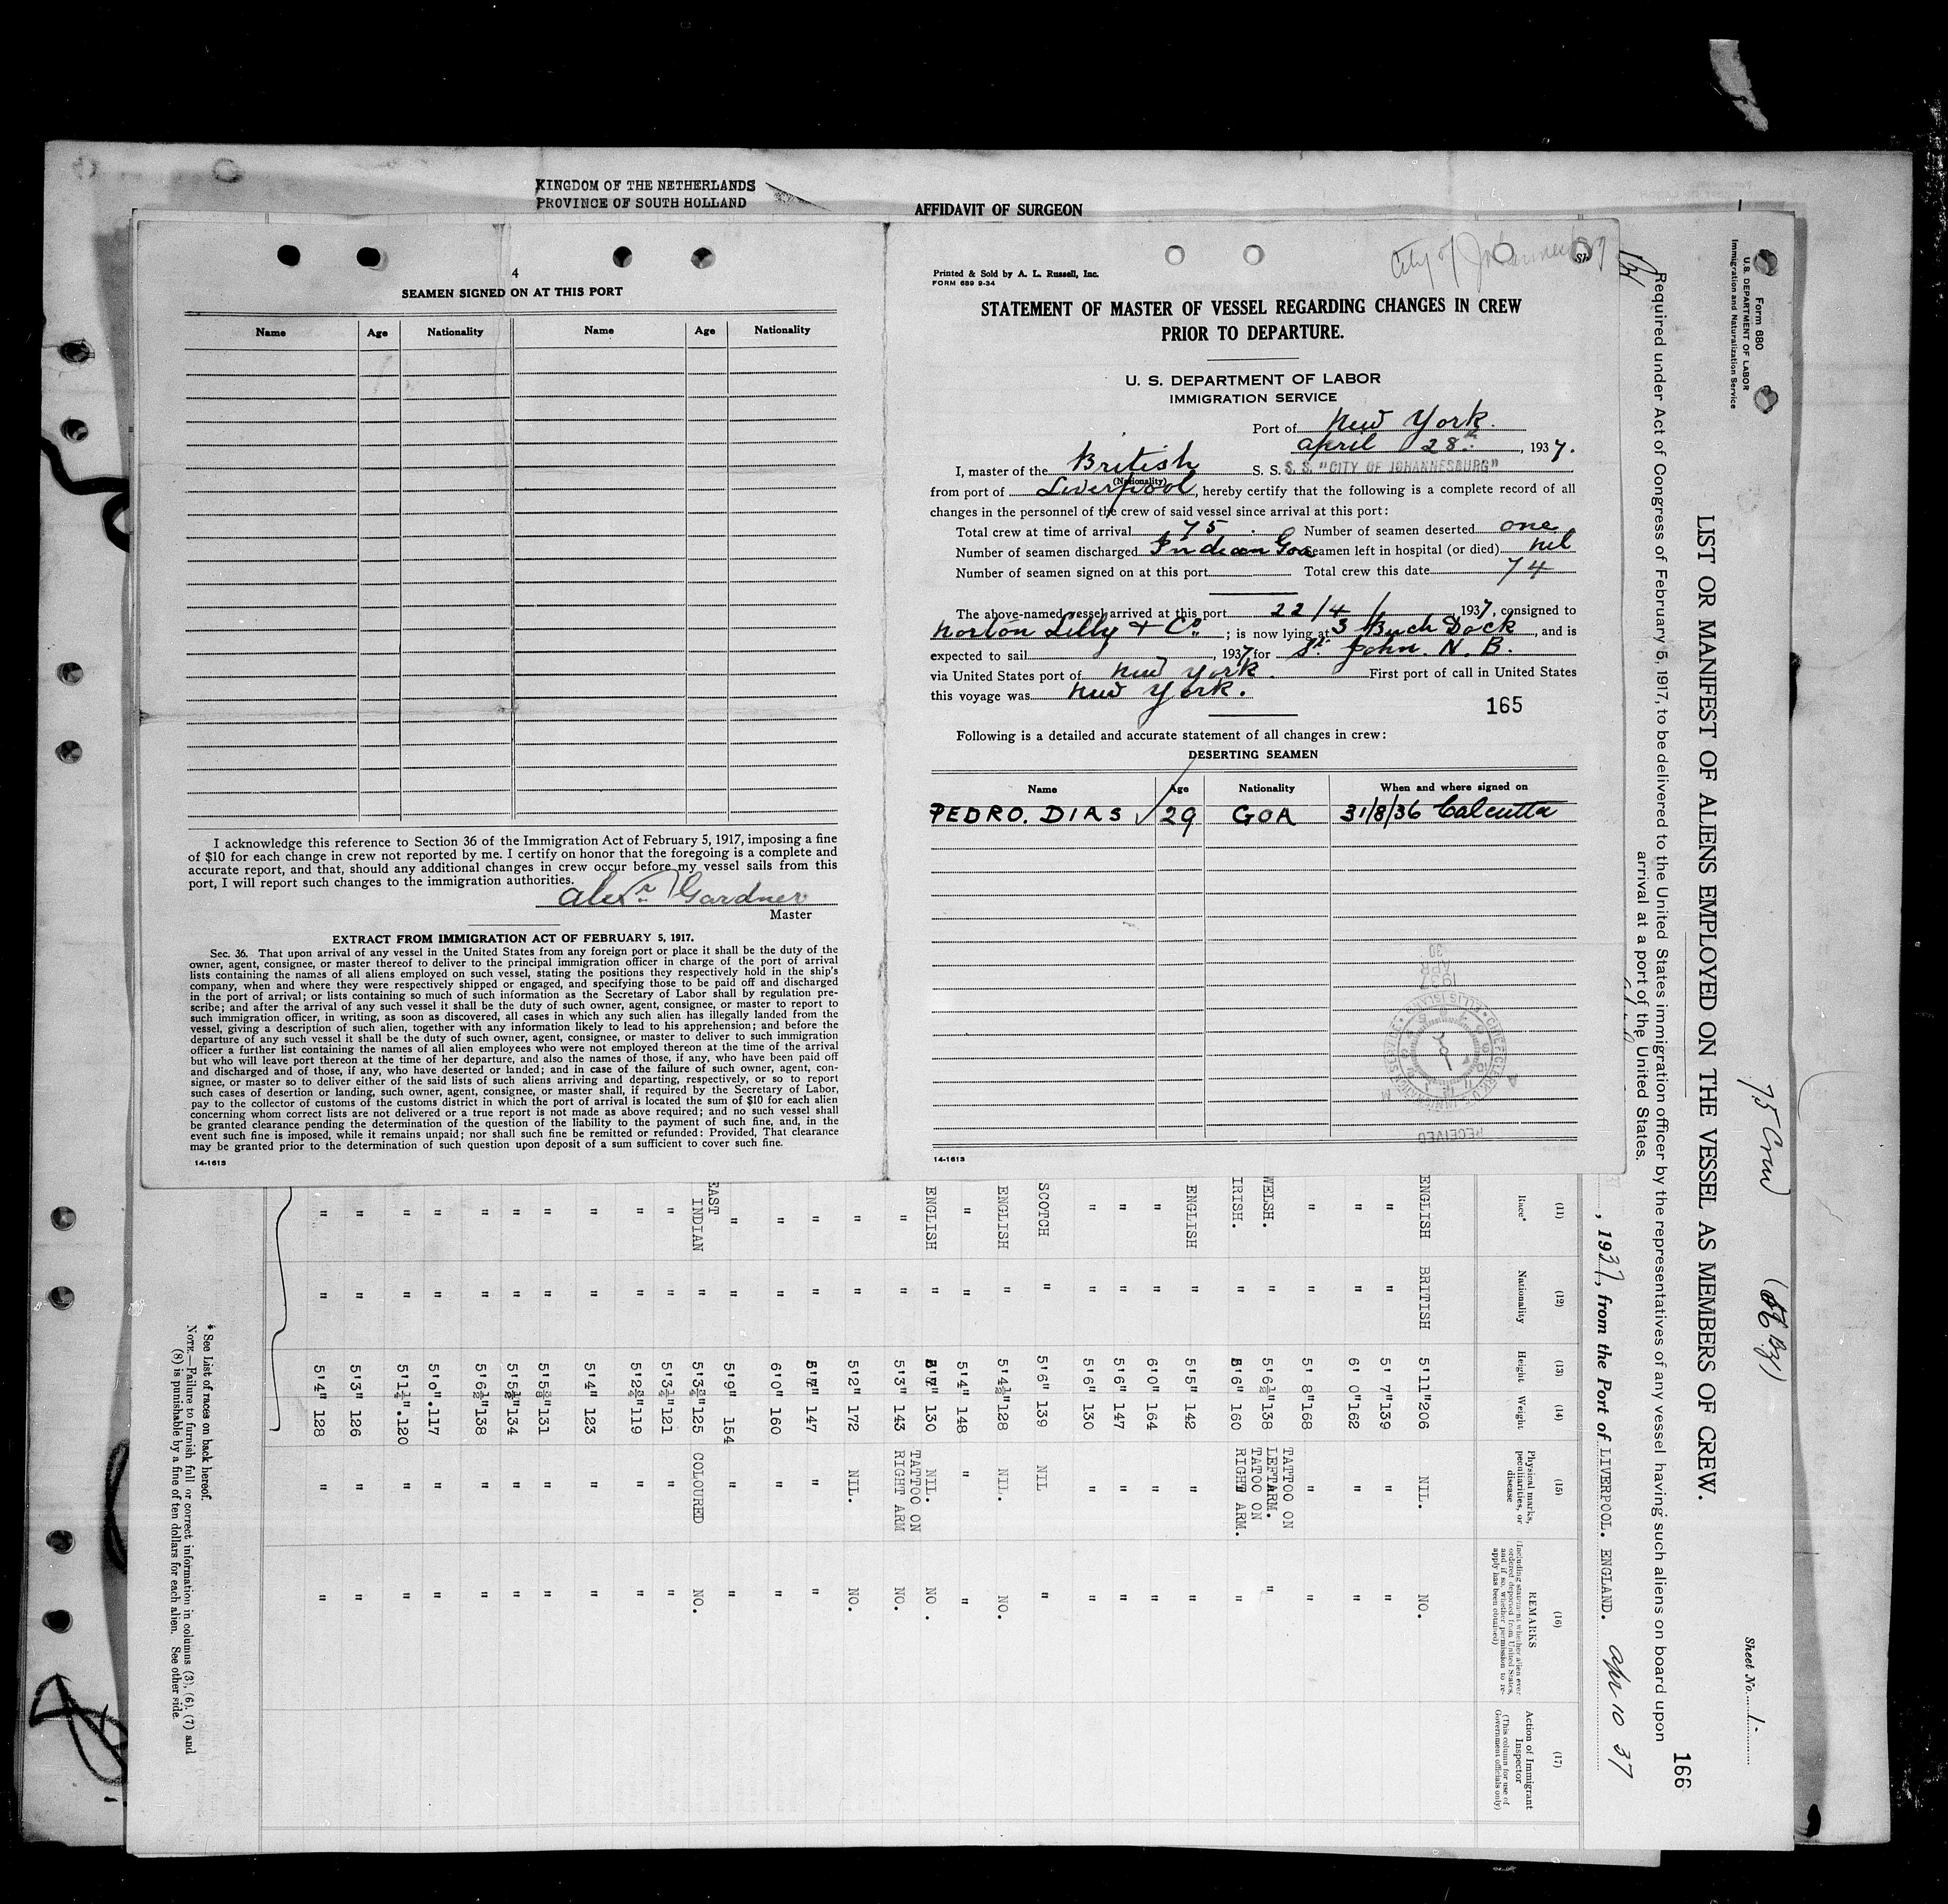 KINGDOM OF THE NETHERLANDS
PROVINCE OF SOUTH HOLLAND
AFFIDAVIT OF SURGEON
4
SEAMEN SIGNED ON AT THIS PORT
Name Age Nationality Name Age Nationality
I acknowledge this reference to Section 36 of the Immigration Act of February 5, 1917, imposing a fine
of $10 for each change in crew not reported by me. I certify on honor that the foregoing is a complete and
accurate report, and that, should any additional changes in crew occur before my vessel sails from this
port, I will report such changes to the immigration authorities.
Alexr Gardner
Master
EXTRACT FROM IMMIGRATION ACT OF FEBRUARY 5, 1917.
Sec. 36. That upon arrival of any vessel in the United States from any foreign port or place it shall be the duty of the
owner, agent, consignee, or master thereof to deliver to the principal immigration officer in charge of the port of arrival
lists containing the names of all aliens employed on such vessel, stating the positions they respectively hold in the ship's
company, when and where they were respectively shipped or engaged, and specifying those to be paid off and discharged
in the port of arrival; or lists containing so much of such information as the Secretary of Labor shall by regulation pre-
scribe; and after the arrival of any such vessel it shall be the duty of such owner, agent, consignee, or master to report to
such immigration officer, in writing, as soon as discovered, all cases in which any such alien has illegally landed from the
vessel, giving a description of such alien, together with any information likely to lead to his apprehension; and before the
departure of any such vessel it shall be the duty of such owner, agent, consignee, or master to deliver to such immigration
officer a further list containing the names of all alien employees who were not employed thereon at the time of the arrival
but who will leave port thereon at the time of her departure, and also the names of those, if any, who have been paid off
and discharged and of those, if any, who have deserted or landed; and in case of the failure of such owner, agent, con-
signee, or master so to deliver either of the said lists of such aliens arriving and departing, respectively, or so to report
such cases of desertion or landing, such owner, agent, consignee, or master shall, if required by the Secretary of Labor,
pay to the collector of customs of the customs district in which the port of arrival is located the sum of $10 for each alien
concerning whom correct lists are not delivered or a true report is not made as above required; and no such vessel shall
be granted clearance pending the determination of the question of the liability to the payment of such fine, and, in the
event such fine is imposed, while it remains unpaid; nor shall such fine be remitted or refunded: Provided, That clearance
may be granted prior to the determination of such question upon deposit of a sum sufficient to cover such fine.
14-1613
City of Johannesburg
Printed & Sold by A. L. Russell, Inc.
FORM 689 9-34
STATEMENT OF MASTER OF VESSEL REGARDING CHANGES IN CREW
PRIOR TO DEPARTURE.
U. S. DEPARTMENT OF LABOR
IMMIGRATION SERVICE
Port of New York.
April 28th, 1937.
I, master of the British S. S. S. S. "CITY OF JOHANNESBURG"
(Nationality)
from port of Liverpool, hereby certify that the following is a complete record of all
changes in the personnel of the crew of said vessel since arrival at this port:
Total crew at time of arrival 75. Number of seamen deserted one
Number of seamen discharged Indian Goa Seamen left in hospital (or died) nil
Number of seamen signed on at this port Total crew this date 74
The above-named vessel arrived at this port 22/4/ 1937, consigned to
Norton Lilly & Co.; is now lying at 3 Buch Dock, and is
expected to sail, 1937 for St. John. N. B.
via United States port of New York. First port of call in United States
this voyage was New York.
165
Following is a detailed and accurate statement of all changes in crew:
DESERTING SEAMEN
Name Age Nationality When and where signed on
PEDRO. DIAS ✓ 29 GOA 31/8/36 Calcutta
1937
APR
30
RECEIVED
14-1613
Form 680
U. S. DEPARTMENT OF LABOR
Immigration and Naturalization Service
75 Crew (56 By)
Sheet No. 1.
166
LIST OR MANIFEST OF ALIENS EMPLOYED ON THE VESSEL AS MEMBERS OF CREW.
Required under Act of Congress of February 5, 1917, to be delivered to the United States immigration officer by the representatives of any vessel having such aliens on board upon
arrival at a port of the United States.
, 1937, from the Port of LIVERPOOL. ENGLAND. Apr 10 37
(11) (12) (13) (14) (15) (16) (17)
Race* Nationality Height Weight Physical marks, peculiarities, or disease REMARKS (Including statement whether alien ever ordered deported from United States, and if so, whether permission to reapply has been obtained) Action of Immigrant Inspector (This column for use of Government officials only)
ENGLISH BRITISH 5'11" 206 NIL. NO.
" " 5' 7" 139 " "
" " 6' 0" 162 " "
" " 5' 8" 168 " "
WELSH. " 5'6½" 138 TATTOO ON LEFTARM. "
IRISH. " 5'6" 160 TATOO ON RIGHT ARM. "
ENGLISH " 5'5" 142 " "
" " 6'0" 164 " "
" " 5'6" 147 " "
" " 5'6" 130 " "
SCOTCH " 5'6" 139 NIL "
ENGLISH " 5'4½" 128 NIL. NO.
" " 5'4" 148 " "
ENGLISH " 130 NIL. NO.
" " 5'3" 143 TATTOO ON RIGHT ARM NO.
" " 5'2" 172 NIL. NO.
" " 147 " "
" " 6'0" 160 " "
" " 5'9" 154 " "
EAST INDIAN " 5'3¾" 125 COLOURED NO.
" " 5'3¼" 121 " "
" " 5'2¾" 119 " "
" " 5'4" 123 " "
" " 131 " "
" " 5'5½" 134 " "
" " 5'6½" 138 " "
" " 5'0". 117 " "
" " 5'1½". 120 " "
" " 5'3" 126 " "
" " 5'4" 128 " "
* See List of races on back hereof.
NOTE.—Failure to furnish full or correct information in columns (3), (6), (7) and
(8) is punishable by a fine of ten dollars for each alien. See other side.